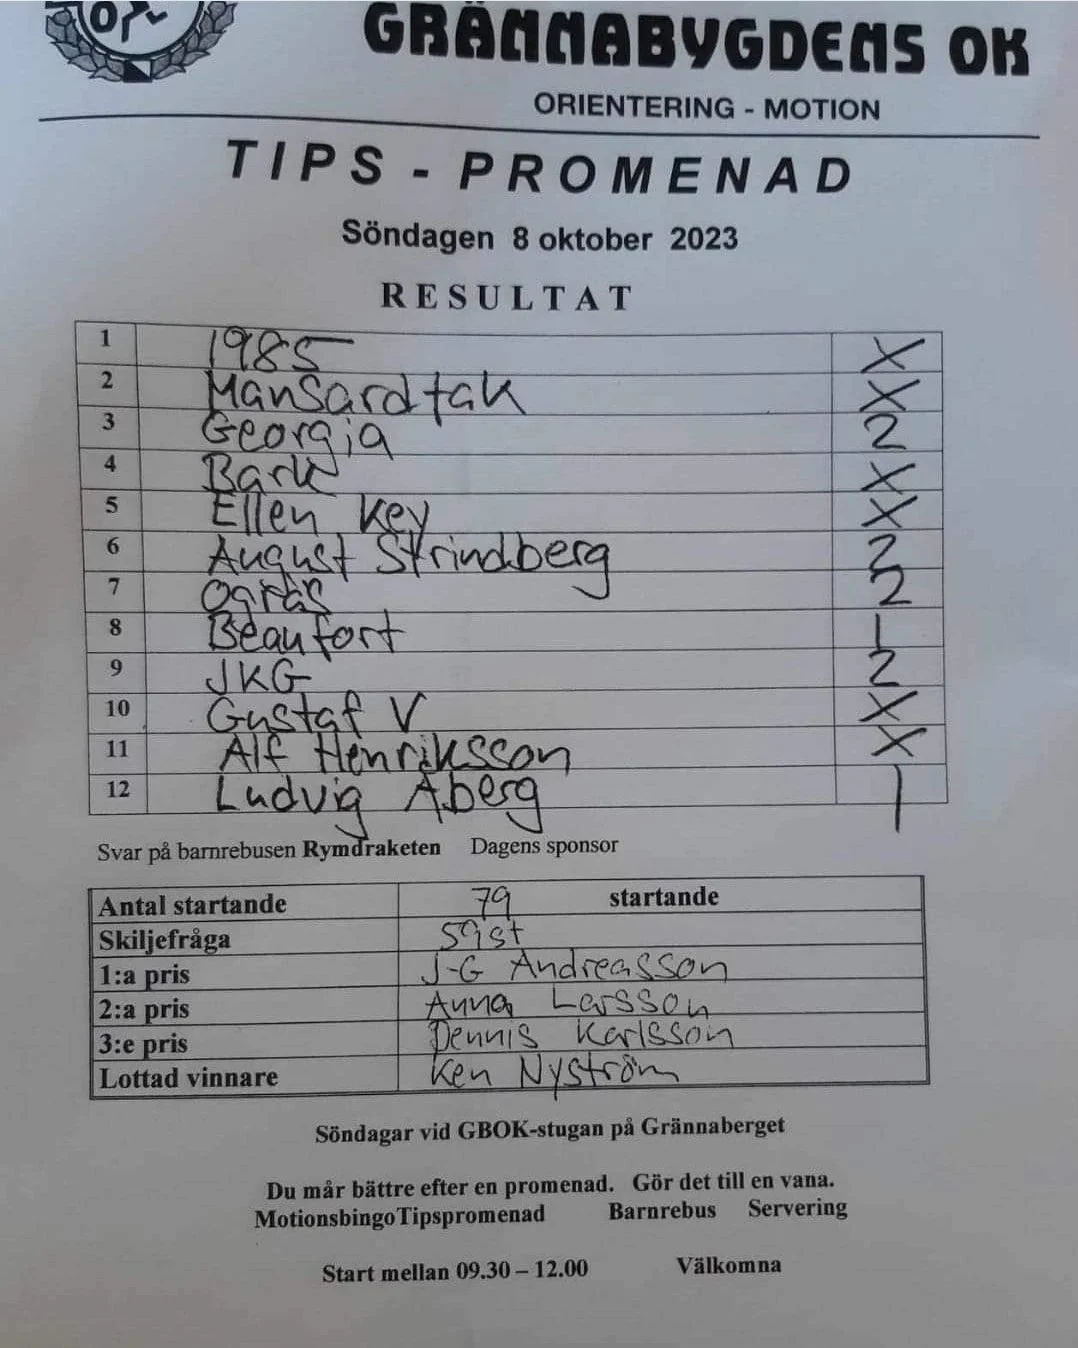 GRÄNNABYGDENS OK
ORIENTERING - MOTION
TIPS - PROMENAD
Söndagen 8 oktober 2023
RESULTAT
1 1985 X
2 Mansardtak X
3 Georgia 2
4 Bark X
5 Ellen Key X
6 August Strindberg 2
7 Ogräs 2
8 Beaufort 1
9 JKG 2
10 Gustaf V X
11 Alf Henriksson X
12 Ludvig Åberg 1
Svar på barnrebusen Rymdraketen Dagens sponsor
Antal startande 79 startande
Skiljefråga 59st
1:a pris J-G Andreasson
2:a pris Anna Larsson
3:e pris Dennis Karlsson
Lottad vinnare Ken Nyström
Söndagar vid GBOK-stugan på Grännaberget
Du mår bättre efter en promenad. Gör det till en vana.
MotionsbingoTipspromenad Barnrebus Servering
Start mellan 09.30 – 12.00 Välkomna